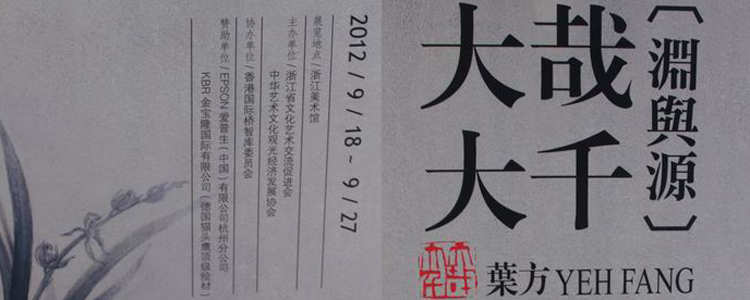 大哉
大千
〔淵與源〕
葉方 YEH FANG
2012 / 9 / 18 ~ 9 / 27
展览地点 / 浙江美术馆
主办单位 / 浙江省文化艺术交流促进会
中华艺术文化观光经济发展协会
协办单位 / 香港国际桥智库委员会
赞助单位 / EPSON 爱普生（中国）有限公司杭州分公司
KBR 金宝隆国际有限公司（德国猫头鹰顶级绘材）